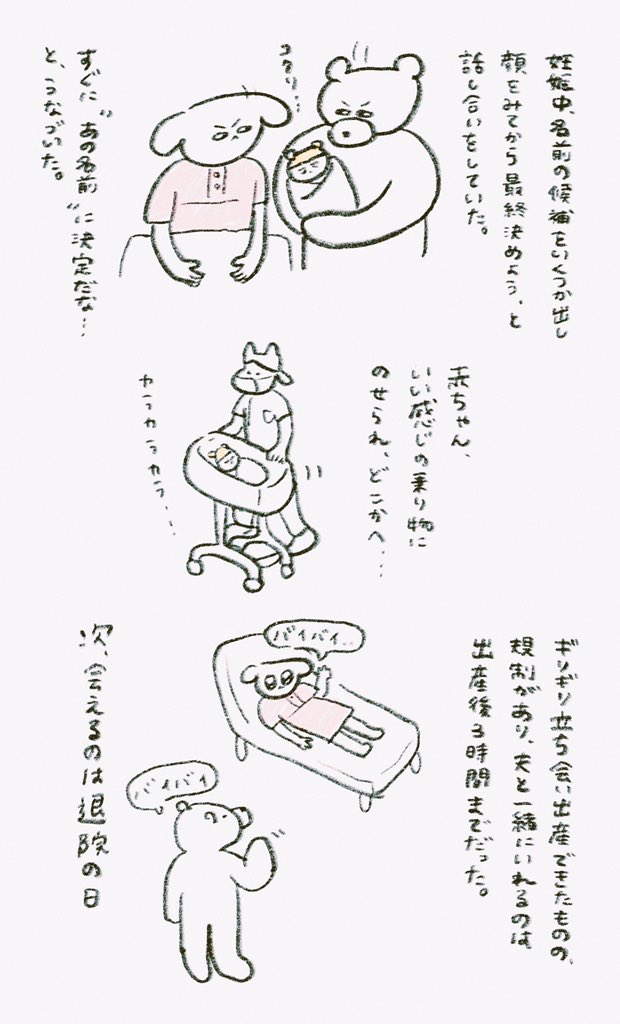 妊娠中、名前の候補をいくつか出し
顔をみてから最終決めよう、と
話し合いをしていた。
コクリ…
すぐに“あの名前
”に決定だな…
と、うなづいた。
赤ちゃん、
いい感じの乗り物に
のせられ、どこかへ…
カラカラカラ…
ギリギリ立ち会い出産できたものの、
規制があり、夫と一緒にいれるのは
出産後3時間までだった。
バイバイ…
バイバイ
次、会えるのは退院の日